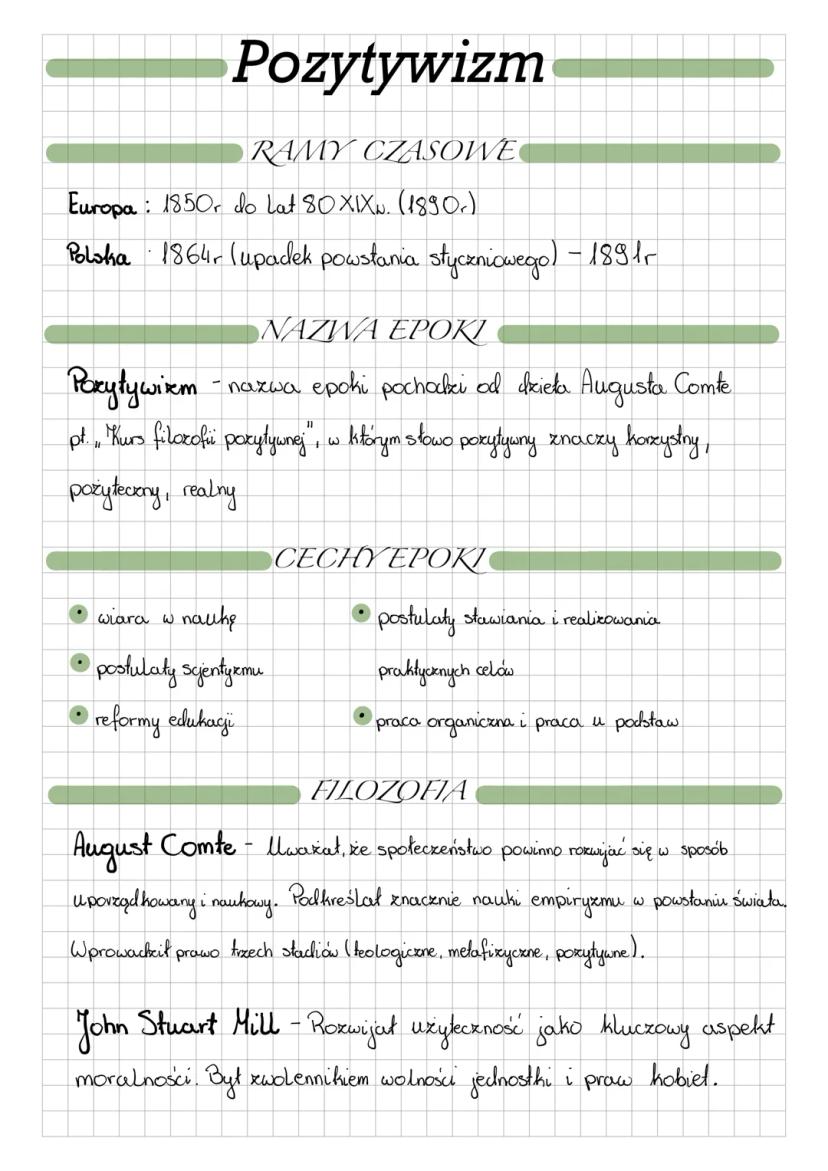 Pozytywizm
RAMY CZASOWE
Europa : 1850r do lat 80 XIXw. (1890r)
Polska : 1864r (upadek powstania styczniowego) - 1891r
NAZWA EPOKI
Pozytywizm - nazwa epoki pochodzi od dzieła Augusta Comte
pt. „Kurs filozofii pozytywnej", w którym słowo pozytywny znaczy korzystny,
pożyteczny, realny
CECHY EPOKI
• wiara w naukę
• postulaty scjentyzmu
• reformy edukacji
• postulaty stawiania i realizowania
praktycznych celów
• praca organiczna i praca u podstaw
FILOZOFIA
August Comte - Uważał, że społeczeństwo powinno rozwijać się w sposób
uporządkowany i naukowy. Podkreślał znacznie nauki empiryzmu w powstaniu świata.
Wprowadził prawo trzech stadiów (teologiczne, metafizyczne, pozytywne).
John Stuart Mill - Rozwijał użyteczność jako kluczowy aspekt
moralności. Był zwolennikiem wolności jednostki i praw kobiet.